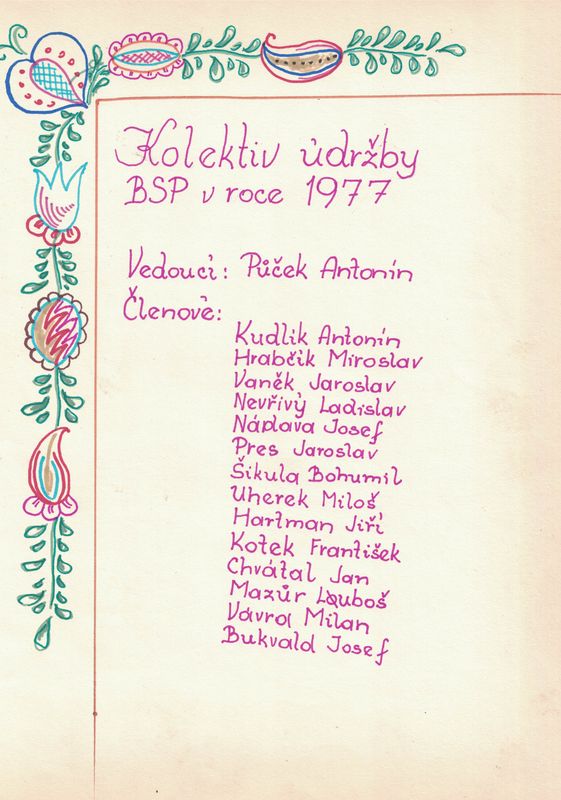 Kolektiv údržby
BSP v roce 1977
Vedoucí: Půček Antonín
Členové:
Kudlik Antonín
Hrabčik Miroslav
Vaněk Jaroslav
Nevřivý Ladislav
Náplava Josef
Pres Jaroslav
Šikula Bohumil
Uherek Miloš
Hartman Jiří
Kotek František
Chvátal Jan
Mazůr Luboš
Vávra Milan
Bukvald Josef